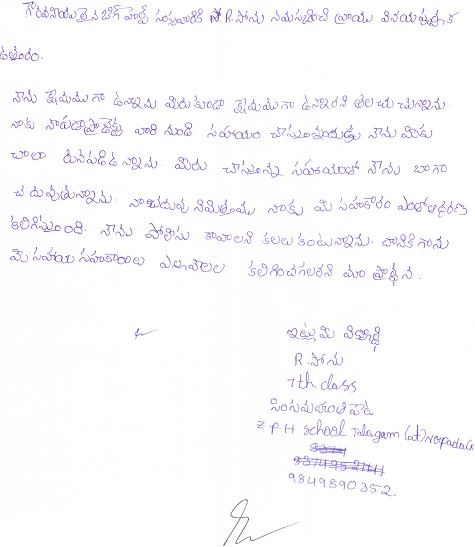 గౌరవనీయులైన బిగ్ హెల్ప్ సంస్థవారికి R. సోను నమస్కరించి వ్రాయు వినయపూర్వక
ఉత్తరం.
నేను క్షేమముగా ఉన్నాను మీరుకూడా క్షేమముగా ఉన్నారని తలచుచున్నాను.
నాకు వారి నుండి సహాయం చేస్తున్నందుకు నేను మీకు
చాలా రుణపడిఉన్నాను. మీరు చేస్తున్న సహాయంతో నేను బాగా
చదువుతున్నాను. నా చదువు నిమిత్తము నాకు మీ సహకారం ఎంతో
కలిగిస్తుంది. నేను పోలీసు కావాలని కలలు కంటున్నాను. దానికి గాను
మీ సహాయ సహకారాలు ఎల్లవేళలా కలిగించగలరని మా ప్రార్థన.
ఇట్లు మీ విద్యార్థి
R. సోను
7th class
Z P H School Talagam (at) Nowpada
8374
8374952141
9849590352.